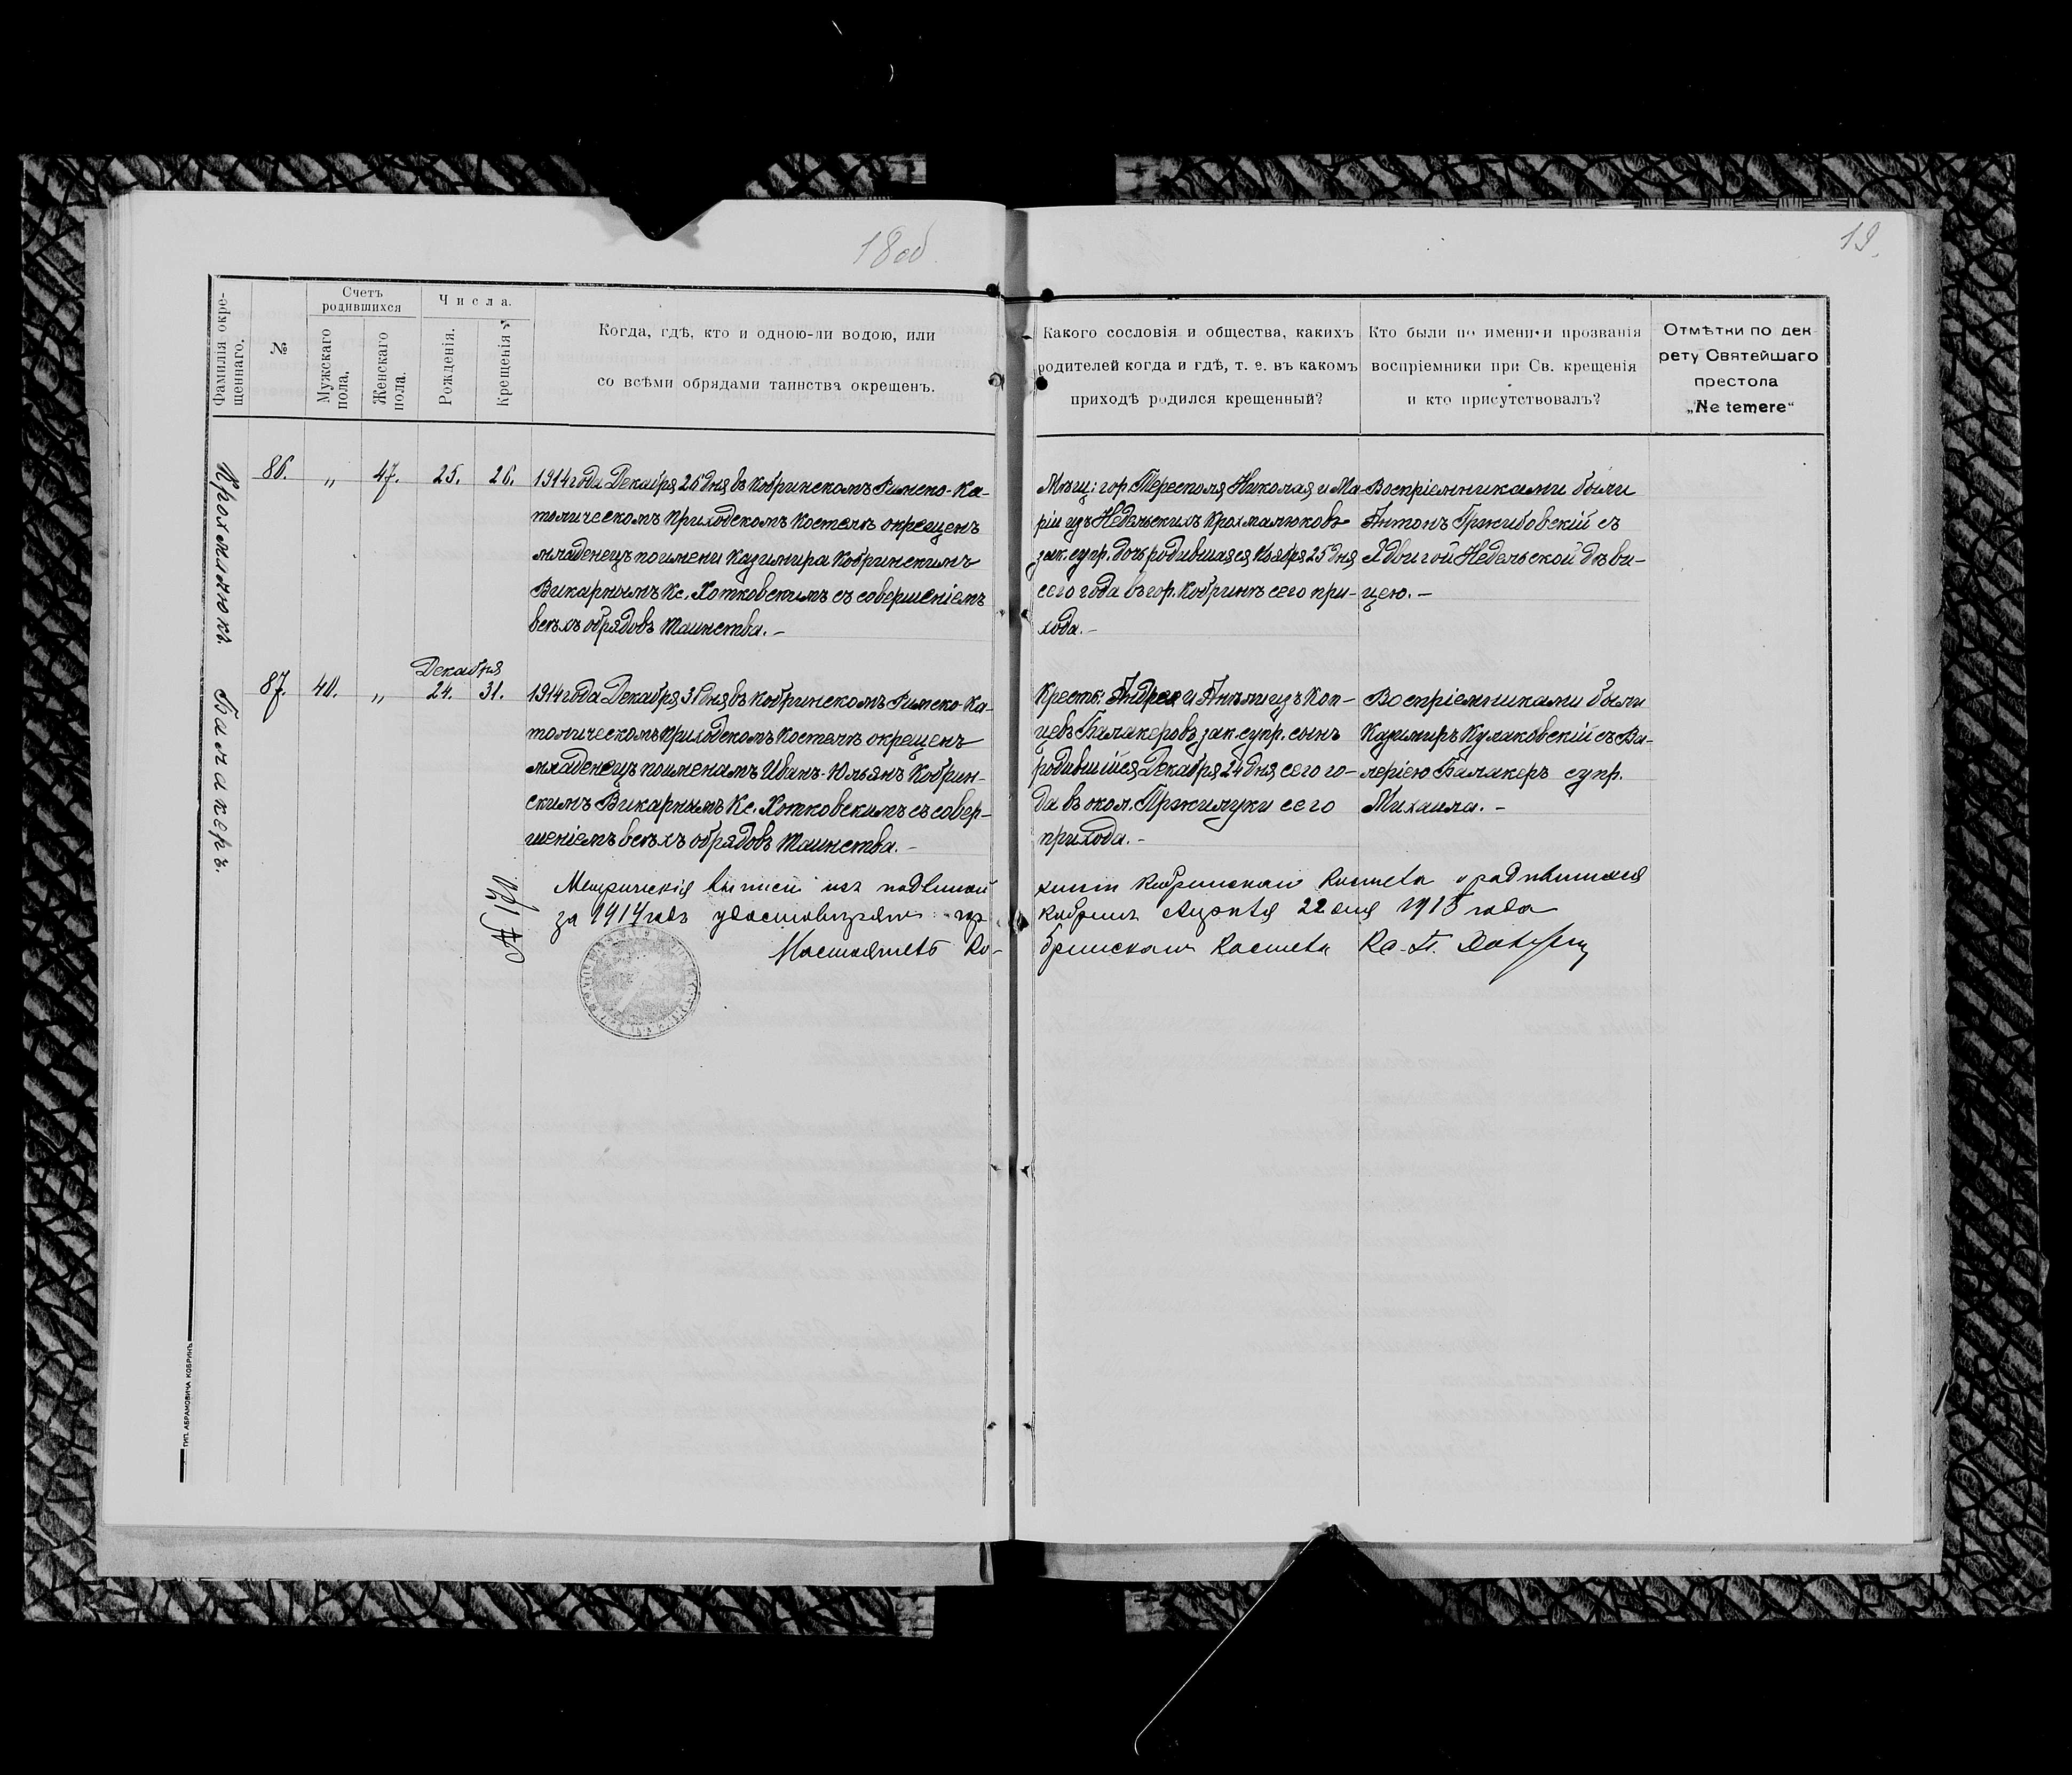 18 об.
19.
Фамилія окре-
щеннаго.
№
Счетъ
родившихся
Мужескаго
пола.
Женскаго
пола.
Числа.
Рожденія.
Крещенія
Когда, гдѣ, кто и одною-ли водою, или
со всѣми обрядами таинства окрещенъ.
Какого сословія и общества, какихъ
родителей когда и гдѣ, т. е. въ какомъ
приходѣ родился крещенный?
Кто были по имени и прозванія
воспріемники при Св. крещенія
и кто присутствовалъ?
Отмѣтки по дек
рету Святейшаго
престола
„Ne temere“
Крохмалюкъ.
86. „ 47. 25. 26.
1914 года Декабря 26 дня въ Кобринскомъ Римско-Ка-
толическомъ Приходскомъ Костелѣ окрещенъ
младенецъ по имени Казимира Кобринскимъ
Викарнымъ Кс. Хотковскимъ съ совершеніемъ
всѣхъ обрядовъ таинства. –
Мѣщ: гор. Тересполя Николая и Ма-
ріи изъ Недельскихъ Крохмалюковъ
зак. супр. дочь родившаяся Ноября 25 дня
сего года въ гор. Кобринѣ сего при-
хода. –
Воспріемниками были
Антонъ Гржибовскій съ
Ядвигой Недельской дѣви-
цею. –
Балакеръ.
Декабря
87. 40. „ 24. 31.
1914 года Декабря 31 дня въ Кобринскомъ Римско-Ка-
толическомъ Приходскомъ Костелѣ окрещенъ
младенецъ по именамъ Иванъ-Юльянъ Кобрин-
скимъ Викарнымъ Кс. Хотковскимъ съ совер-
шеніемъ всѣхъ обрядовъ таинства. –
Крест: Андрея и Анѣли изъ Коп-
цевъ Балакеровъ зак. супр. сынъ
родившійся Декабря 24 дня сего го-
да въ окол. Пржилуки сего
прихода. –
Воспріемниками были
Казимиръ Кулаковскій съ Ва-
леріею Балакеръ супр.
Михаила. –
Метрическія выписи изъ подлинной книги Кобринскаго Костела о родившихся
за 1914 годъ удостовѣряю гор. Кобринъ 22 дня 1915 года
Настоятель Ко-бринскаго Костела Кс.
ТИП. АБРАМОВИЧА КОБРИНЪ